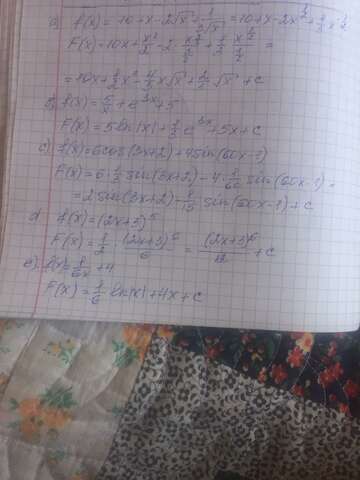 a) f(x) = 10 + x - 2√x + 1/(2√x) = 10 + x - 2x^(1/2) + 1/2 x^(-1/2)
F(x) = 10x + x²/2 - 2 · x^(3/2)/(3/2) + 1/2 · x^(1/2)/(1/2) =
= 10x + 1/2 x² - 4/3 x√x + 1/2 √x + c
f(x) = 5/x + e^(3x) + 5
F(x) = 5 ln|x| + 1/3 e^(3x) + 5x + c
c) f(x) = 6cos(3x+2) + 4sin(60x-1)
F(x) = 6 · 1/3 sin(3x+2) - 4 · 1/60 sin(60x-1) =
= 2sin(3x+2) - 1/15 sin(60x-1) + c
d f(x) = (2x+3)^5
F(x) = 1/2 · (2x+3)^6/6 = (2x+3)^6/12 + c
e) f(x) = 1/(6x) + 4
F(x) = 1/6 ln(x) + 4x + c